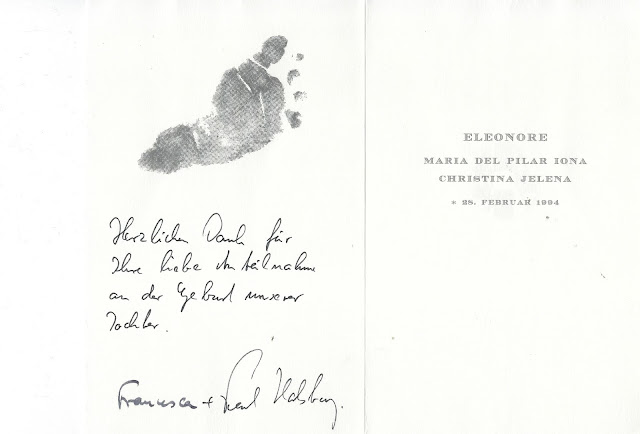 Herzlichen Dank für
Ihre liebe Anteilnahme
an der Geburt unserer
Tochter.
Francesca + Karl Habsburg.
ELEONORE
MARIA DEL PILAR IONA
CHRISTINA JELENA
* 28. FEBRUAR 1994